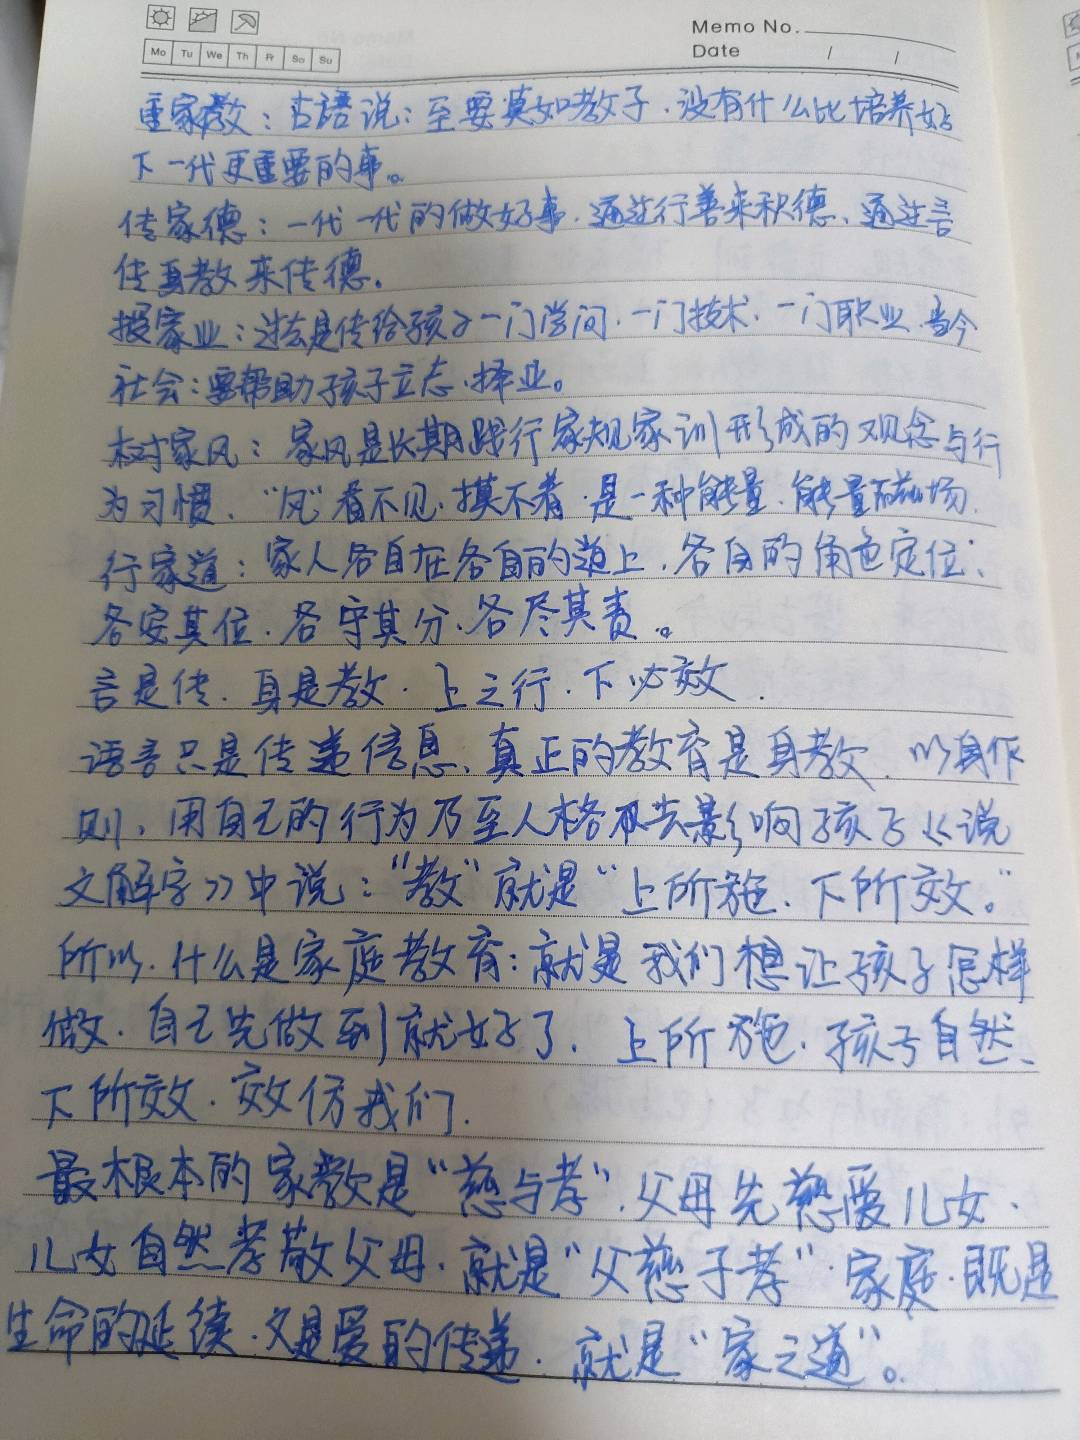 Memo No.
Date / /
Mo Tu We Th Fr Sa Su
重家教：古語说：至要莫如教子．没有什么比培养好
下一代更重要的事。
传家德：一代一代的做好事．通过行善来积德、通过言
传身教来传德．
授家业：过去是传给孩子一门学问．一门技术．一门职业．当今
社会：要帮助孩子立志．择业。
树家风：家风是长期践行家规家训形成的观念与行
为习惯．“风”看不见．摸不着．是一种能量．能量磁场．
行家道：家人各自在各自的道上．各自的角色定位：
各安其位．各守其分．各尽其责。
言是传．身是教．上之行．下必效．
语言只是传递信息、真正的教育是身教．以身作
则、用自己的行为乃至人格去影响孩子《说
文解字》中说：“教”就是“上所施．下所效。”
所以．什么是家庭教育：就是我们想让孩子怎样
做．自己先做到就好了．上所施．孩子自然、
下所效．效仿我们．
最根本的家教是“慈与孝”．父母先慈爱儿女．
儿女自然孝敬父母．就是“父慈子孝”．家庭．既是
生命的延续．又是爱的传递．就是“家之道”。